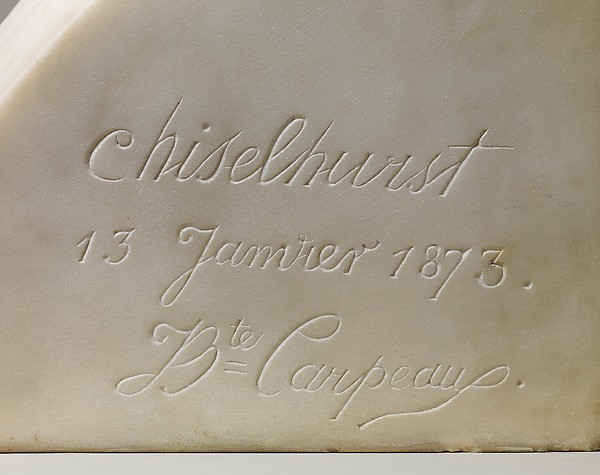 Chiselhurst
13 Janvier 1873.
JBte Carpeaux.